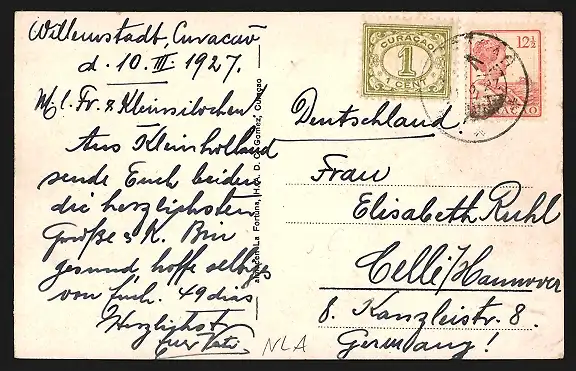 Willemstadt, Curacao
d. 10. III. 1927.
M. l. Fr. & Kleinsilochen
Aus Kleinholland
sende Euch beiden
die herzlichsten
Grüße & K. Bin
gesund hoffe selbiges
von Euch. 49 dias
Herzlichst
Euer Vati.
NLA
almacen La Fortuna, H. A. D. C. Gomez, Curaçao
CURAÇAO
1
1 CENT
12½
Deutschland.
Frau
Elisabeth Ruhl
Celle/Hannover
8. Kanzleistr. 8.
Germany!